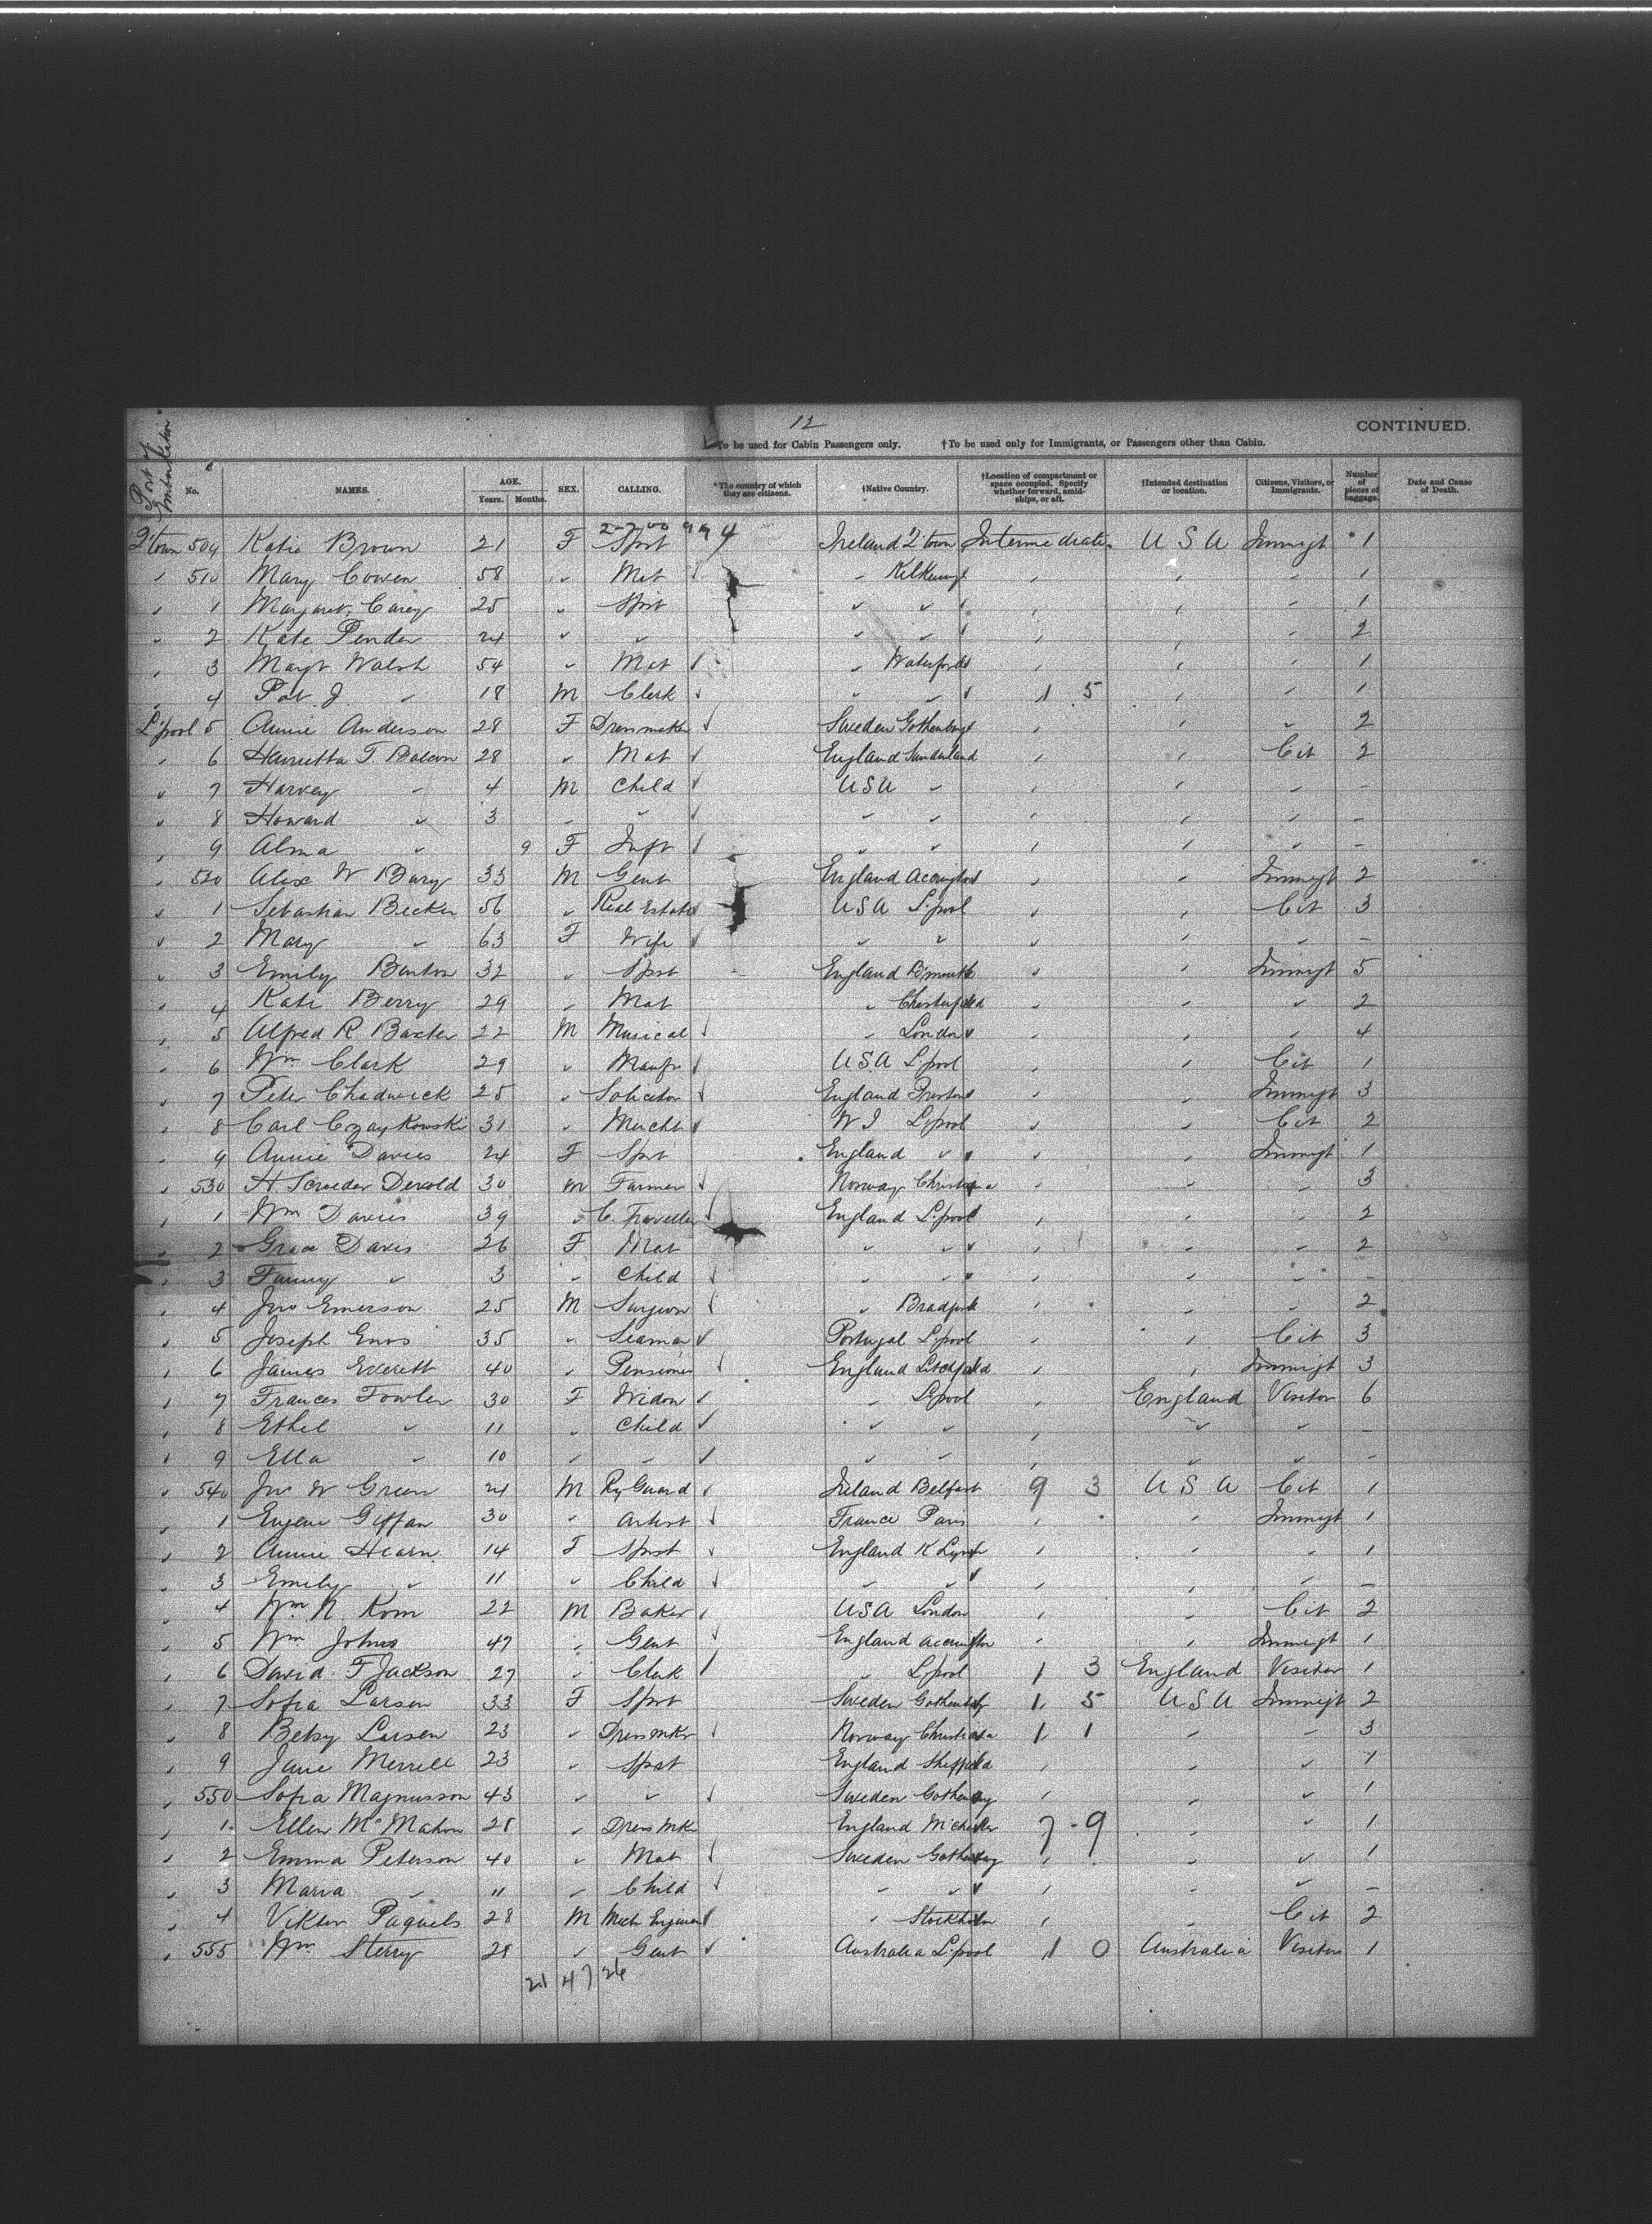 12
CONTINUED.
*To be used for Cabin Passengers only. †To be used only for Immigrants, or Passengers other than Cabin.
Port of Embarkation No. NAMES. AGE. Years. Months. SEX. CALLING. *The country of which they are citizens. †Native Country. †Location of compartment or space occupied. Specify whether forward, amidships, or aft. †Intended destination or location. Citizens, Visitors, or Immigrants. Number of pieces of baggage. Date and Cause of Death.
2-700 994
Q'town 509 Katie Brown 21 F Spst Ireland Q'town Intermediate U S A Immigt 1
" 510 Mary Cowen 58 " Mat " Kilkenny " " " 1
" 1 Margaret Carey 25 " Spst " " " " " 1
" 2 Kate Pender 24 " " " " " " " 2
" 3 Margt Walsh 54 " Mat " Waterford " " " 1
" 4 Pat. J. " 18 M Clerk " " 1 5 " " 1
L'pool 5 Annie Anderson 28 F Dressmaker Sweden Gothenbug " " " 2
" 6 Harrietta T. 28 " Mat England Sunderland " " Cit 2
" 7 Harvey " 4 M Child USA " " " " -
" 8 Howard " 3 " " " " " " " -
" 9 Alma " 9 F Inft " " " " " -
" 520 Alex W Bury 33 M Gent England Accrington " " Immigt 2
" 1 Sebastian Becker 56 " Real Estate USA L'pool " " Cit 3
" 2 Mary " 63 F Wife " " " " " -
" 3 Emily Burton 32 " Spst England B'mouth " " Immigt 5
" 4 Kate Berry 29 " Mat " Chesterfield " " " 2
" 5 Alfred R Baxter 22 M Musical " London " " " 4
" 6 Wm Clark 29 " Manfr USA L'pool " " Cit 1
" 7 Peter Chadwick 25 " Solicitor England Preston " " Immigt 3
" 8 Carl Czaykowski 31 " Mercht W I L'pool " " Cit 2
" 9 Annie Davies 24 F Spst England " " " Immigt 1
" 530 H Scroeder Devold 30 M Farmer Norway Christiana " " " 3
" 1 Wm Davies 39 " C. Traveller England L'pool " " " 2
" 2 Grace Davis 26 F Mat " " " " " 2
" 3 Fanny " 3 " Child " " " " " -
" 4 Jno Emerson 25 M Surgeon " Bradford " " " 2
" 5 Joseph Enos 35 " Seaman Portugal L'pool " " Cit 3
" 6 James Everett 40 " Pensioner England Litchfield " " Immigt 3
" 7 Frances Fowler 30 F Widow " L'pool " England Visitor 6
" 8 Ethel " 11 " Child " " " " " -
" 9 Ella " 10 " " " " " " " -
" 540 Jno W Green 21 M Ry Guard Ireland Belfast 9 3 U S A Cit 1
" 1 Eugene Giffan 30 " Artist France Paris " " Immigt 1
" 2 Annie Hearn 14 F Spst England K Lynn " " " 1
" 3 Emily " 11 " Child " " " " " -
" 4 Wm N. Korn 22 M Baker USA London " " Cit 2
" 5 Wm Johns 47 " Gent England Accrington " " Immigt 1
" 6 David F Jackson 27 " Clerk " L'pool 1 3 England Visitor 1
" 7 Sofia Larsen 33 F Spst Sweden Gothenbg 1 5 USA Immigt 2
" 8 Betsy Larsen 23 " Dressmkr Norway Christiana 1 1 " " 3
" 9 Jane Merrell 23 " Spst England Sheffield " " " 1
" 550 Sofia Magnusson 43 " " Sweden Gothenbug " " " 1
" 1 Ellen McMahon 28 " Dress Mkr England M'chester 7 - 9 " " 1
" 2 Emma Peterson 40 " Mat Sweden Gothenbug " " " 1
" 3 Maria " 11 " Child " " " " " -
" 4 Viktor Paquels 28 M Mech Engineer " Stockholm " " Cit 2
" 555 Wm Sterry 28 " Gent Australia L'pool 1 0 Australia Visitor 1
21 47 26